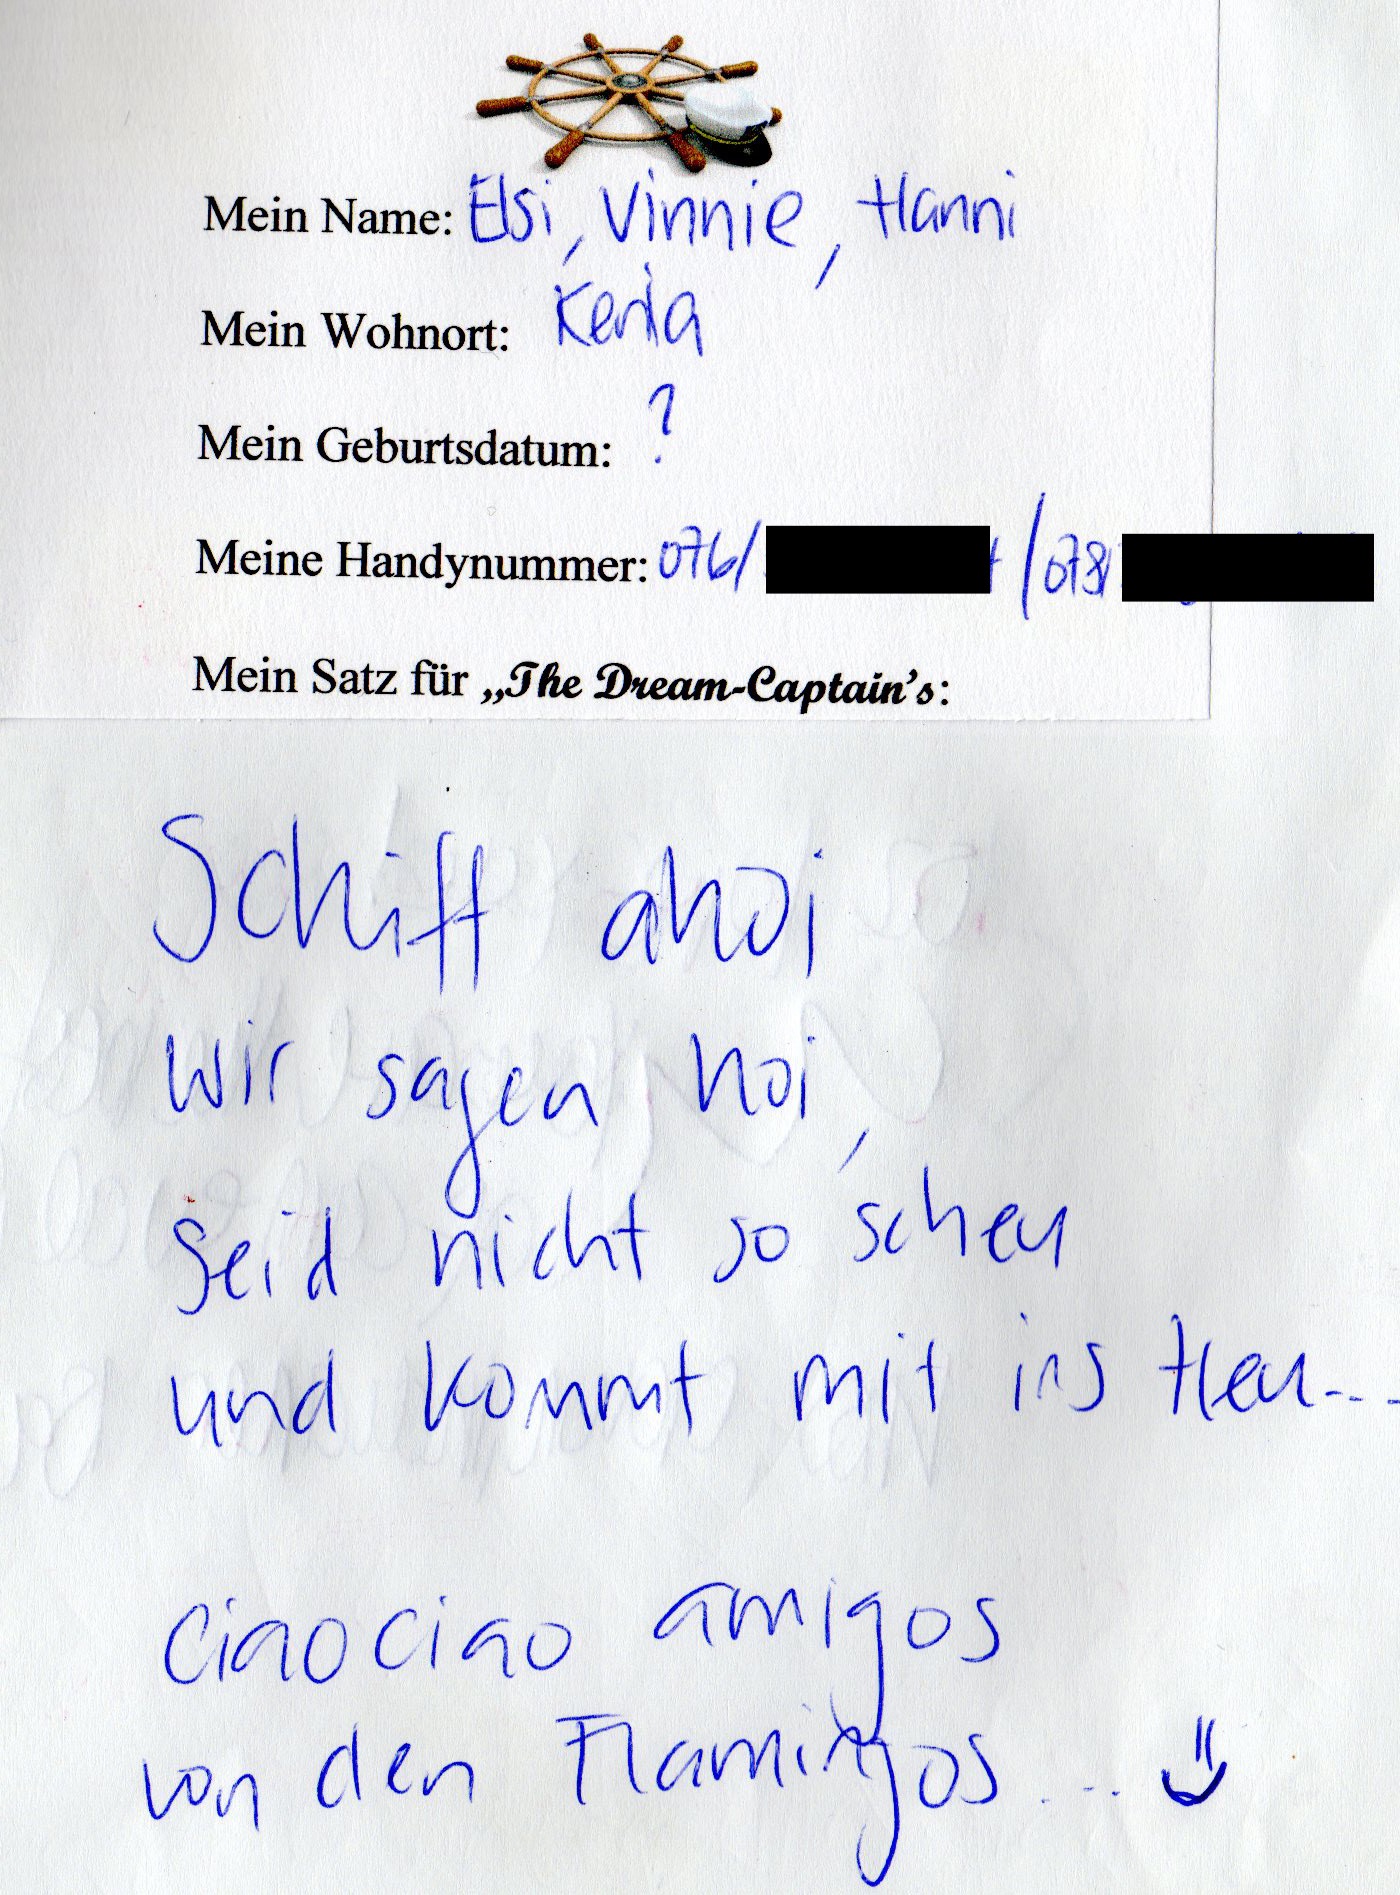 Mein Name: Elsi, Vinnie, Hanni
Mein Wohnort: Kenia
Mein Geburtsdatum: ?
Meine Handynummer: 076/ / 078/
Mein Satz für „The Dream-Captain's:
Schiff ahoi
wir sagen hoi,
seid nicht so scheu
und kommt mit ins Heu...
ciao ciao amigos
von den Flamingos...